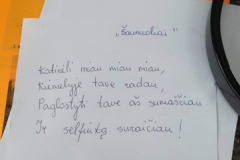 „Šaunuoliai"
Katinėli miau miau miau,
Kiemelyje tave radau,
Paglostyti tave aš sumaščiau
Ir selfiuką suraičiau!